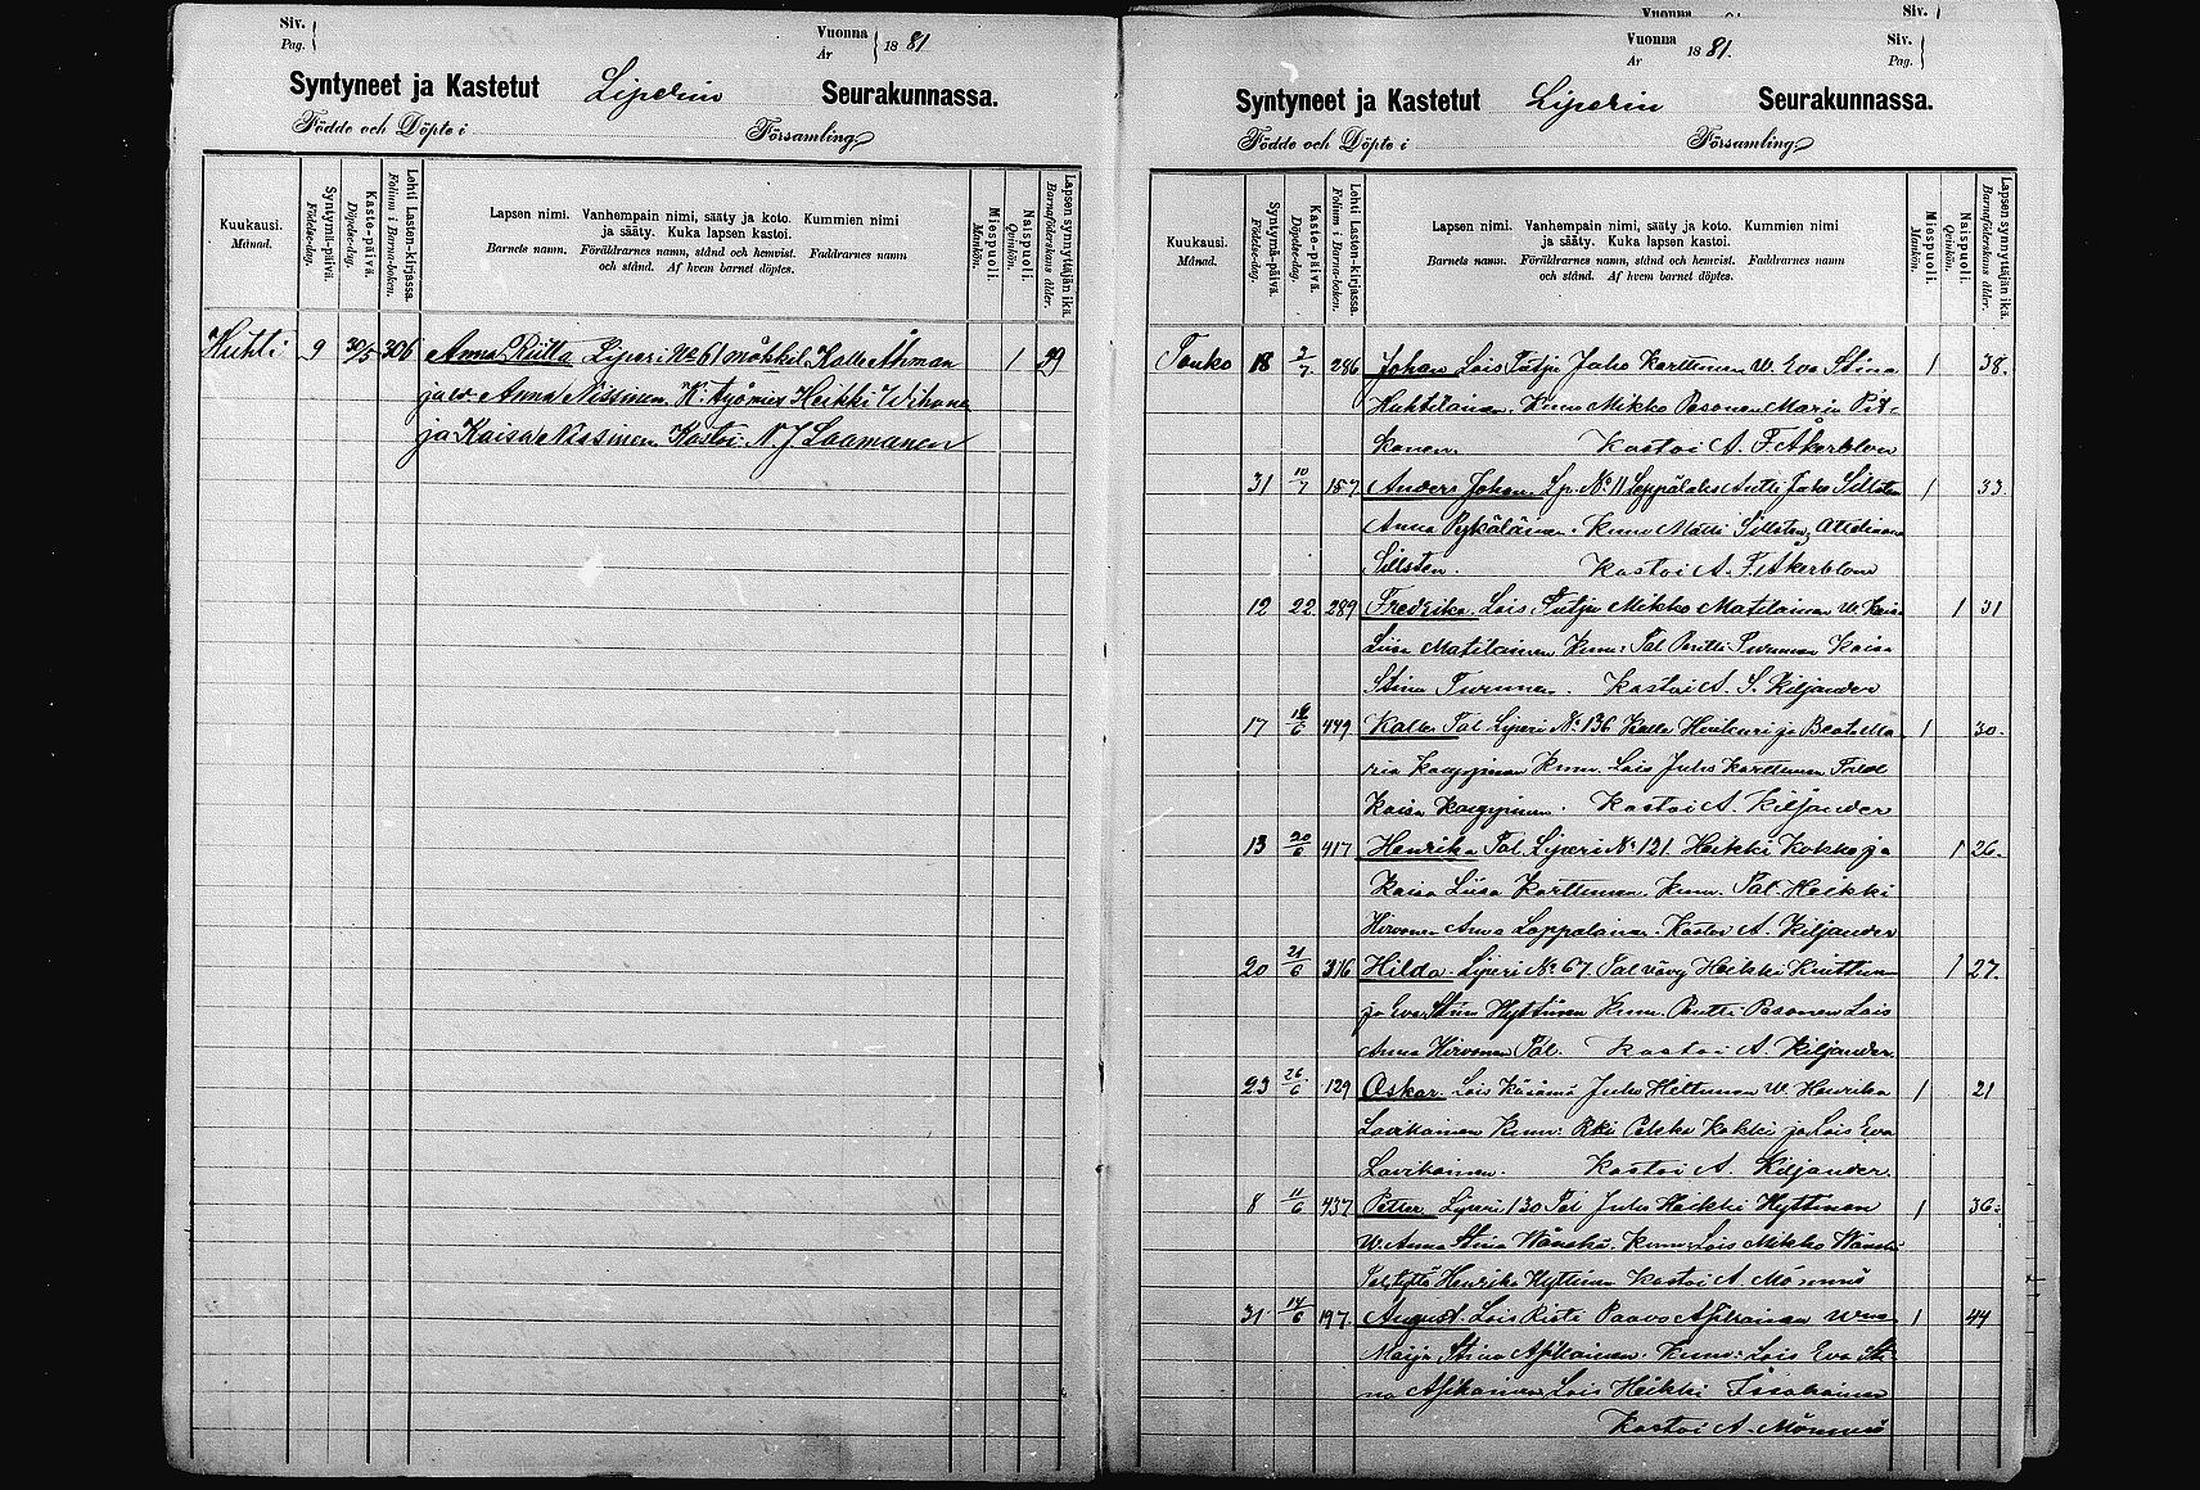 Siv.
Pag.
Vuonna
År
1881
Syntyneet ja Kastetut Liperin Seurakunnassa.
Födde och Döpte i Församling
Kuukausi.
Månad.
Syntymä-päivä.
Födelse-dag.
Kaste-päivä.
Döpelse-dag.
Lehti Lasten-kirjassa.
Folium i Barna-boken.
Lapsen nimi. Vanhempain nimi, sääty ja koto. Kummien nimi
ja sääty. Kuka lapsen kastoi.
Barnets namn. Föräldrarnes namn, stånd och hemvist. Faddrarnes namn
och stånd. Af hvem barnet döptes.
Miespuoli.
Mankön.
Naispuoli.
Qvinkön.
Lapsen synnyttäjän ikä.
Barnaföderskans ålder.
Huhti 9 30/5 306 Anna Riitta Liperi No 61 mökkil. Kalle Åhman 1 39
ja v. Anna Nissinen. K. työmies Heikki Wihonen
ja Kaisa Nissinen. Kastoi N. J. Laamanen
Vuonna Siv.
Vuonna
År
1881.
Siv.
Pag.
Syntyneet ja Kastetut Liperin Seurakunnassa.
Födde och Döpte i Församling
Kuukausi.
Månad.
Syntymä-päivä.
Födelse-dag.
Kaste-päivä.
Döpelse-dag.
Lehti Lasten-kirjassa.
Folium i Barna-boken.
Lapsen nimi. Vanhempain nimi, sääty ja koto. Kummien nimi
ja sääty. Kuka lapsen kastoi.
Barnets namn. Föräldrarnes namn, stånd och hemvist. Faddrarnes namn
och stånd. Af hvem barnet döptes.
Miespuoli.
Mankön.
Naispuoli.
Qvinkön.
Lapsen synnyttäjän ikä.
Barnaföderskans ålder.
Touko 18 3/7 286 Johan Lois Juho Karttunen W. Eva Stina 1 38.
Huhtilainen. Kum Mikko Pesonen Maria Pit-
kanen. Kastoi A. F. Åkerblom
31 10/7 187 Anders Johan. Lp. No 11 Leppälahs Antti Juho Sillsten 1 33.
Anna Pykäläinen. Kum Matti Sillsten,
Sillsten. Kastoi A. F. Åkerblom
12 22 289 Fredrika. Lois Mikko Matilainen W. Kaisa 1 31
Liisa Matilainen Kum: Tal Pentti Turunen Kaisa
Stina Turunen. Kastoi A. S. Kiljander
17 449 Kalle Tal Liperi No 136 Kalle ja Beata Ma 1 30.
ria Kauppinen Kum. Lois Juho Karttunen
Kaisa Kauppinen. Kastoi A. Kiljander
13 20/6 417 Henrika Tal. Liperi No 121. Heikki Kokko ja 1 26.
Kaisa Liisa Karttunen. Kum. Tal. Heikki
Hirvonen Anna Loppalainen. Kastoi A. Kiljander
20 21/6 316 Hilda. Liperi No 67. Tal vävy Heikki Kuittinen 1 27.
ja Eva Stina Hyttinen Kum. Pentti Pesonen Lois
Anna Hirvonen Tal. Kastoi A. Kiljander
23 26/6 129 Oskar. Lois Käsämä Juho Hiltunen W. Henrika 1 21
Lavikainen Kum: Pekka Kokki ja Lois Eva
Lavikainen. Kastoi A. Kiljander.
8 11/6 437 Petter. Liperi 130 Tal Juho Heikki Hyttinen 1 36.
W. Anna Stina Wänskä. Kum: Lois Mikko Wänskä
Tal. tyttö Henrika Hyttinen Kastoi A. Mömmö
31 14/6 197. August. Lois Risti Paavo Asikainen Wmo 1 44
Maija Stina Asikainen. Kum: Lois Eva Sti-
na Asikainen Lois Heikki
Kastoi A. Mömmö